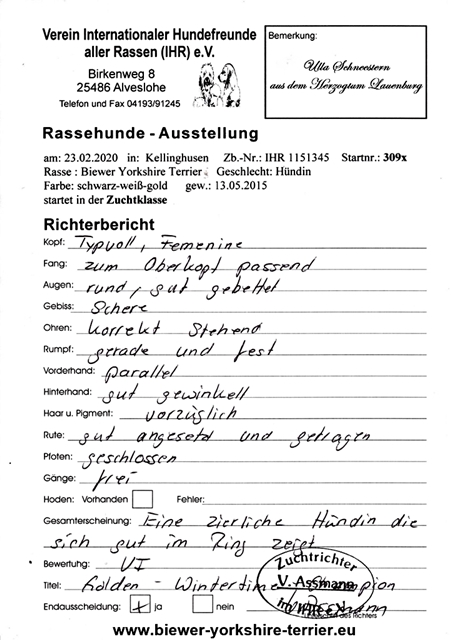 Verein Internationaler Hundefreunde
aller Rassen (IHR) e.V.
Birkenweg 8
25486 Alveslohe
Telefon und Fax 04193/91245
Bemerkung:
Ulla Schneestern
aus dem Herzogtum Lauenburg
Rassehunde - Ausstellung
am: 23.02.2020 in: Kellinghusen Zb.-Nr.: IHR 1151345 Startnr.: 309x
Rasse : Biewer Yorkshire Terrier Geschlecht: Hündin
Farbe: schwarz-weiß-gold gew.: 13.05.2015
startet in der Zuchtklasse
Richterbericht
Kopf: Typvoll, Feminine
Fang: zum Oberkopf passend
Augen: rund, gut gebettet
Gebiss: Schere
Ohren: korrekt Stehend
Rumpf: gerade und fest
Vorderhand: parallel
Hinterhand: gut gewinkelt
Haar u. Pigment: vorzüglich
Rute: gut angesetzt und getragen
Pfoten: geschlossen
Gänge: frei
Hoden: Vorhanden Fehler:
Gesamterscheinung: Eine zierliche Hündin die
sich gut im Ring zeigt
Bewertung: VI
Zuchtrichter
Titel: Golden - Wintertime
V. Assmann
Endausscheidung: x ja nein
des Richters
www.biewer-yorkshire-terrier.eu